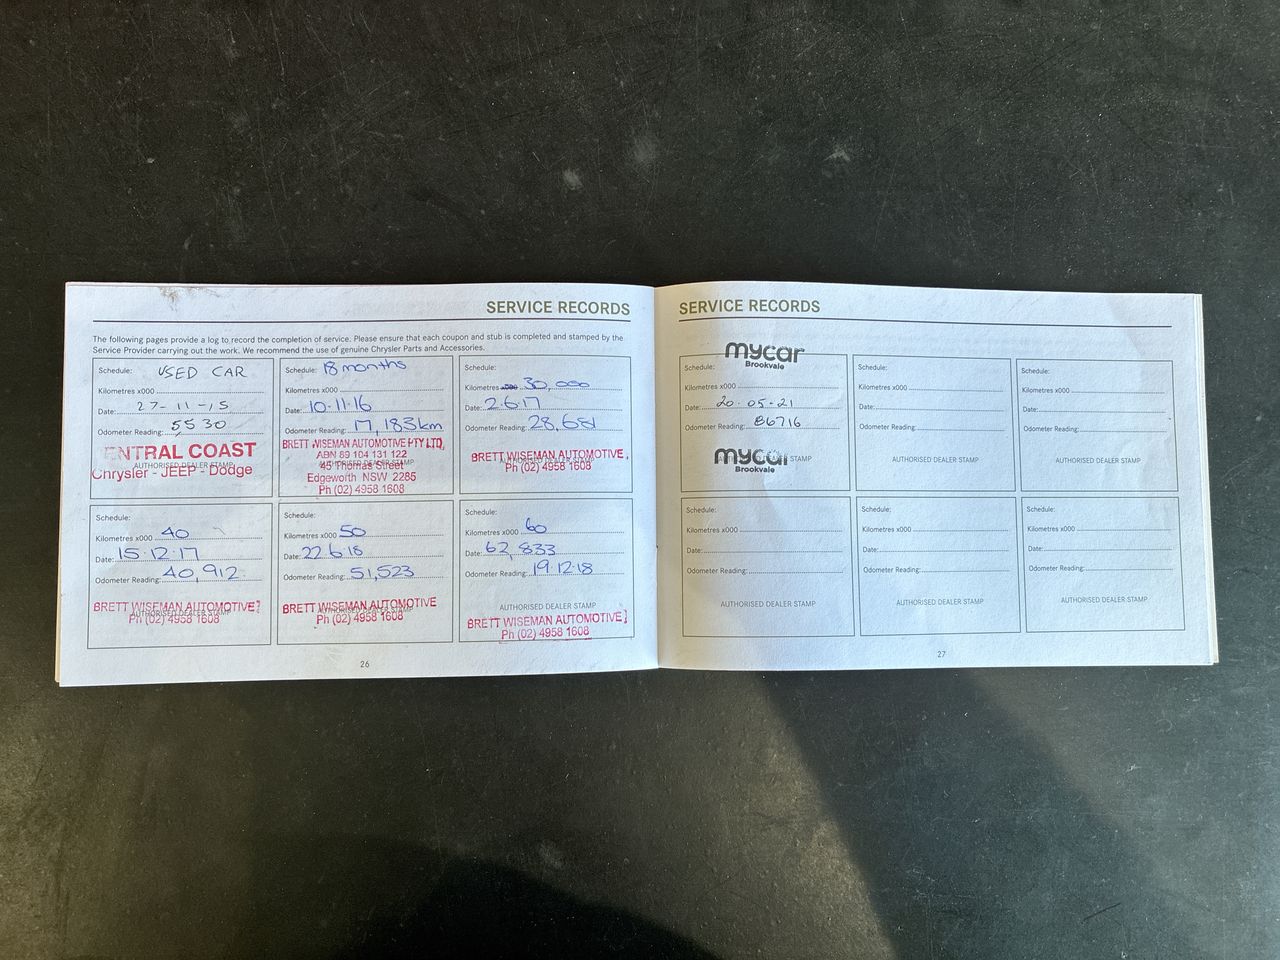 SERVICE RECORDS
The following pages provide a log to record the completion of service. Please ensure that each coupon and stub is completed and stamped by the
Service Provider carrying out the work. We recommend the use of genuine Chrysler Parts and Accessories.
Schedule: USED CAR
Kilometres x000
Date: 27-11-15
Odometer Reading: 5530
ENTRAL COAST
AUTHORISED DEALER STAMP
Chrysler - JEEP - Dodge
Schedule: 18 months
Kilometres x000
Date: 10.11.16
Odometer Reading: 17,183km
BRETT WISEMAN AUTOMOTIVE PTY LTD,
ABN 89 104 131 122
AUTHORISED DEALER STAMP
45 Thomas Street
Edgeworth NSW 2285
Ph (02) 4958 1608
Schedule:
Kilometres x000 30,000
Date: 2.6.17
Odometer Reading: 28,681
BRETT WISEMAN AUTOMOTIVE
AUTHORISED DEALER STAMP
Ph (02) 4958 1608
Schedule:
Kilometres x000 40
Date: 15.12.17
Odometer Reading: 40,912
BRETT WISEMAN AUTOMOTIVE
AUTHORISED DEALER STAMP
Ph (02) 4958 1608
Schedule:
Kilometres x000 50
Date: 22.6.18
Odometer Reading: 51,523
BRETT WISEMAN AUTOMOTIVE
AUTHORISED DEALER STAMP
Ph (02) 4958 1608
Schedule:
Kilometres x000 60
Date: 62,833
Odometer Reading: 19.12.18
AUTHORISED DEALER STAMP
BRETT WISEMAN AUTOMOTIVE
Ph (02) 4958 1608
26
SERVICE RECORDS
mycar
Brookvale
Schedule:
Kilometres x000
Date: 20.05-21
Odometer Reading: 86716
mycar
AUTHORISED DEALER STAMP
Brookvale
Schedule:
Kilometres x000
Date:
Odometer Reading:
AUTHORISED DEALER STAMP
Schedule:
Kilometres x000
Date:
Odometer Reading:
AUTHORISED DEALER STAMP
Schedule:
Kilometres x000
Date:
Odometer Reading:
AUTHORISED DEALER STAMP
Schedule:
Kilometres x000
Date:
Odometer Reading:
AUTHORISED DEALER STAMP
Schedule:
Kilometres x000
Date:
Odometer Reading:
AUTHORISED DEALER STAMP
27